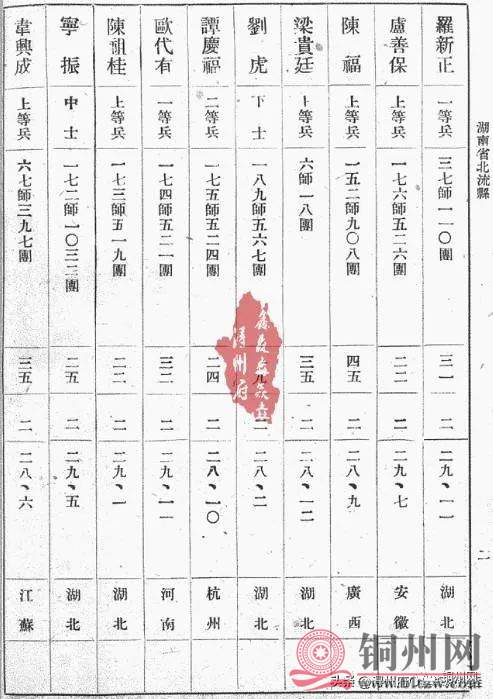 湖南省北流縣
羅新正 一等兵 三七師一一〇團 三一 二 二九、一一 湖北
盧善保 上等兵 一七六師五二六團 二二 二 二九、七 安徽
陳福 上等兵 一五二師九〇八團 四五 二 二八、九 廣西
梁貴廷 上等兵 六師一八團 三五 二 二八、一二 湖北
劉虎 下士 一八九師五六七團 二 二八、二 湖北
譚慶福 二等兵 一七五師五二四團 二四 二 二八、一〇 杭州
歐代有 一等兵 一七四師五二一團 三二 二 二九、一一 河南
陳祖桂 上等兵 一七三師五一九團 二二 二 二九、一 湖北
寧振 中士 一七二師一〇三二團 二五 二 二九、五 湖北
韋興成 上等兵 六七師三九七團 三五 二 二八、六 江蘇
二
潯州府
铜州网